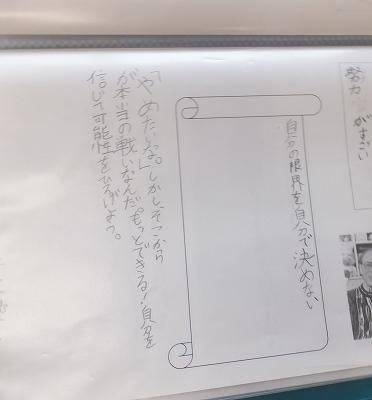 努力がすごい
自分の限界を自分で決めない
「やめたいな。」しかし、そこから
が本当の戦いなんだ。もっとできる！自分を
信じて可能性をひろげよう。